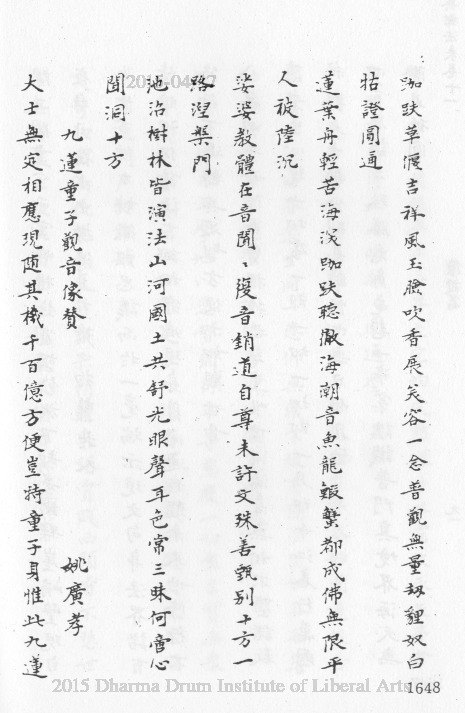 跏趺草偃吉祥風玉臉吹香展笑容一念普觀無量劫貍奴白
牯證圓通
蓮葉舟輕苦海深跏趺聽徹海潮音魚龍蝦蟹都成佛無限平
人被陸沉
娑婆教體在音聞、復音銷道自尊未許文殊善甄别十方一
路涅槃門
池沼樹林皆演法山河國土共舒光眼聲耳色常三昧何啻心
聞洞十方
九蓮童子觀音像贊
姚廣孝
大士無定相應現隨其機千百億方便豈特童子身惟此九蓮
1648
2015 Dharma Drum Institute of Liberal Arts